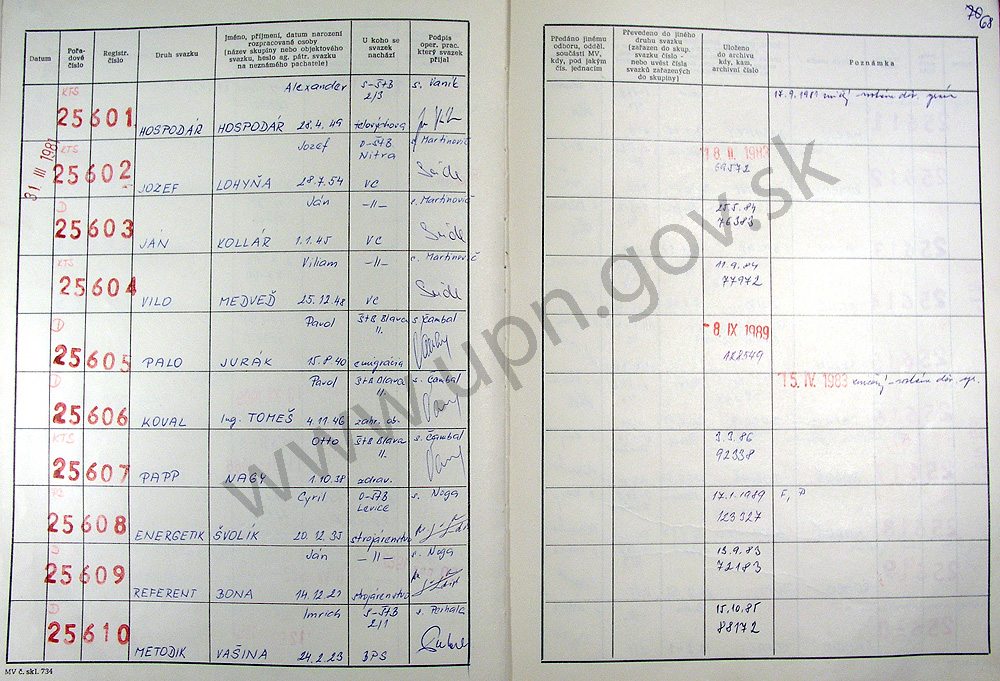 70
68
Datum
Pořa-
dové
číslo
Registr.
číslo
Druh svazku
Jméno, příjmení, datum narození
rozpracované osoby
(název skupiny nebo objektového
svazku, heslo ag. pátr. svazku
na neznámého pachatele)
U koho se
svazek
nachází
Podpis
oper. prac.
který svazek
přijal
Předáno jinému
odboru, odděl.
součásti MV,
kdy, pod jakým
čís. jednacím
Převedeno do jiného
druhu svazku
(zařazen do skup.
svazku číslo -
nebo uvést čísla
svazků zařazených
do skupiny)
Uloženo
do archivu
kdy, kam,
archivní číslo
Poznámka
31 III 1981
KTS
Alexander
S-ŠTB
2/3
s. Vanik
17.9.1981
25601
HOSPODÁŘ
HOSPODÁŘ 28.4.49
KTS
Jozef
O-ŠTB
Nitra
s. Martinovič
18. II. 1983
69572
25602
JOZEF
LOHYŇA 28.7.54
VC
D
Ján
-II-
s. Martinovič
25.5.84
76383
25603
JÁN
KOLLÁR 1.1.45
VC
KTS
Viliam
-II-
s. Martinovič
11.9.84
77972
25604
VILO
MEDVEĎ 25.12.48
VC
D
Pavol
ŠtB Blava
II.
s. Čambal
-8. IX 1989
122549
25605
PALO
JURÁK 15.8.40
emigrácia
D
Pavol
ŠtB Blava
II.
s. Čambal
15. IV. 1983
25606
KOVAL
Ing. TOMEŠ 4.11.46
zahr. ob.
KTS
Otto
ŠtB Blava
II.
s. Čambal
3.3.86
92338
25607
PAPP
NAGY 1.10.38
zdrav.
Cyril
O-ŠTB
Levice
s. Noga
17.1.1989
123327
F, P
25608
ENERGETIK
ŠVOLÍK 20.12.35
strojárenstvo
D
Ján
-II-
s. Noga
13.9.83
72183
25609
REFERENT
BONA 14.12.21
strojárenstvo
D
Imrich
S-ŠTB
2/1
s. Perhala
15.10.85
88172
25610
METODIK
VAŠINA 24.2.23
BPS
MV č. skl. 734
www.upn.gov.sk